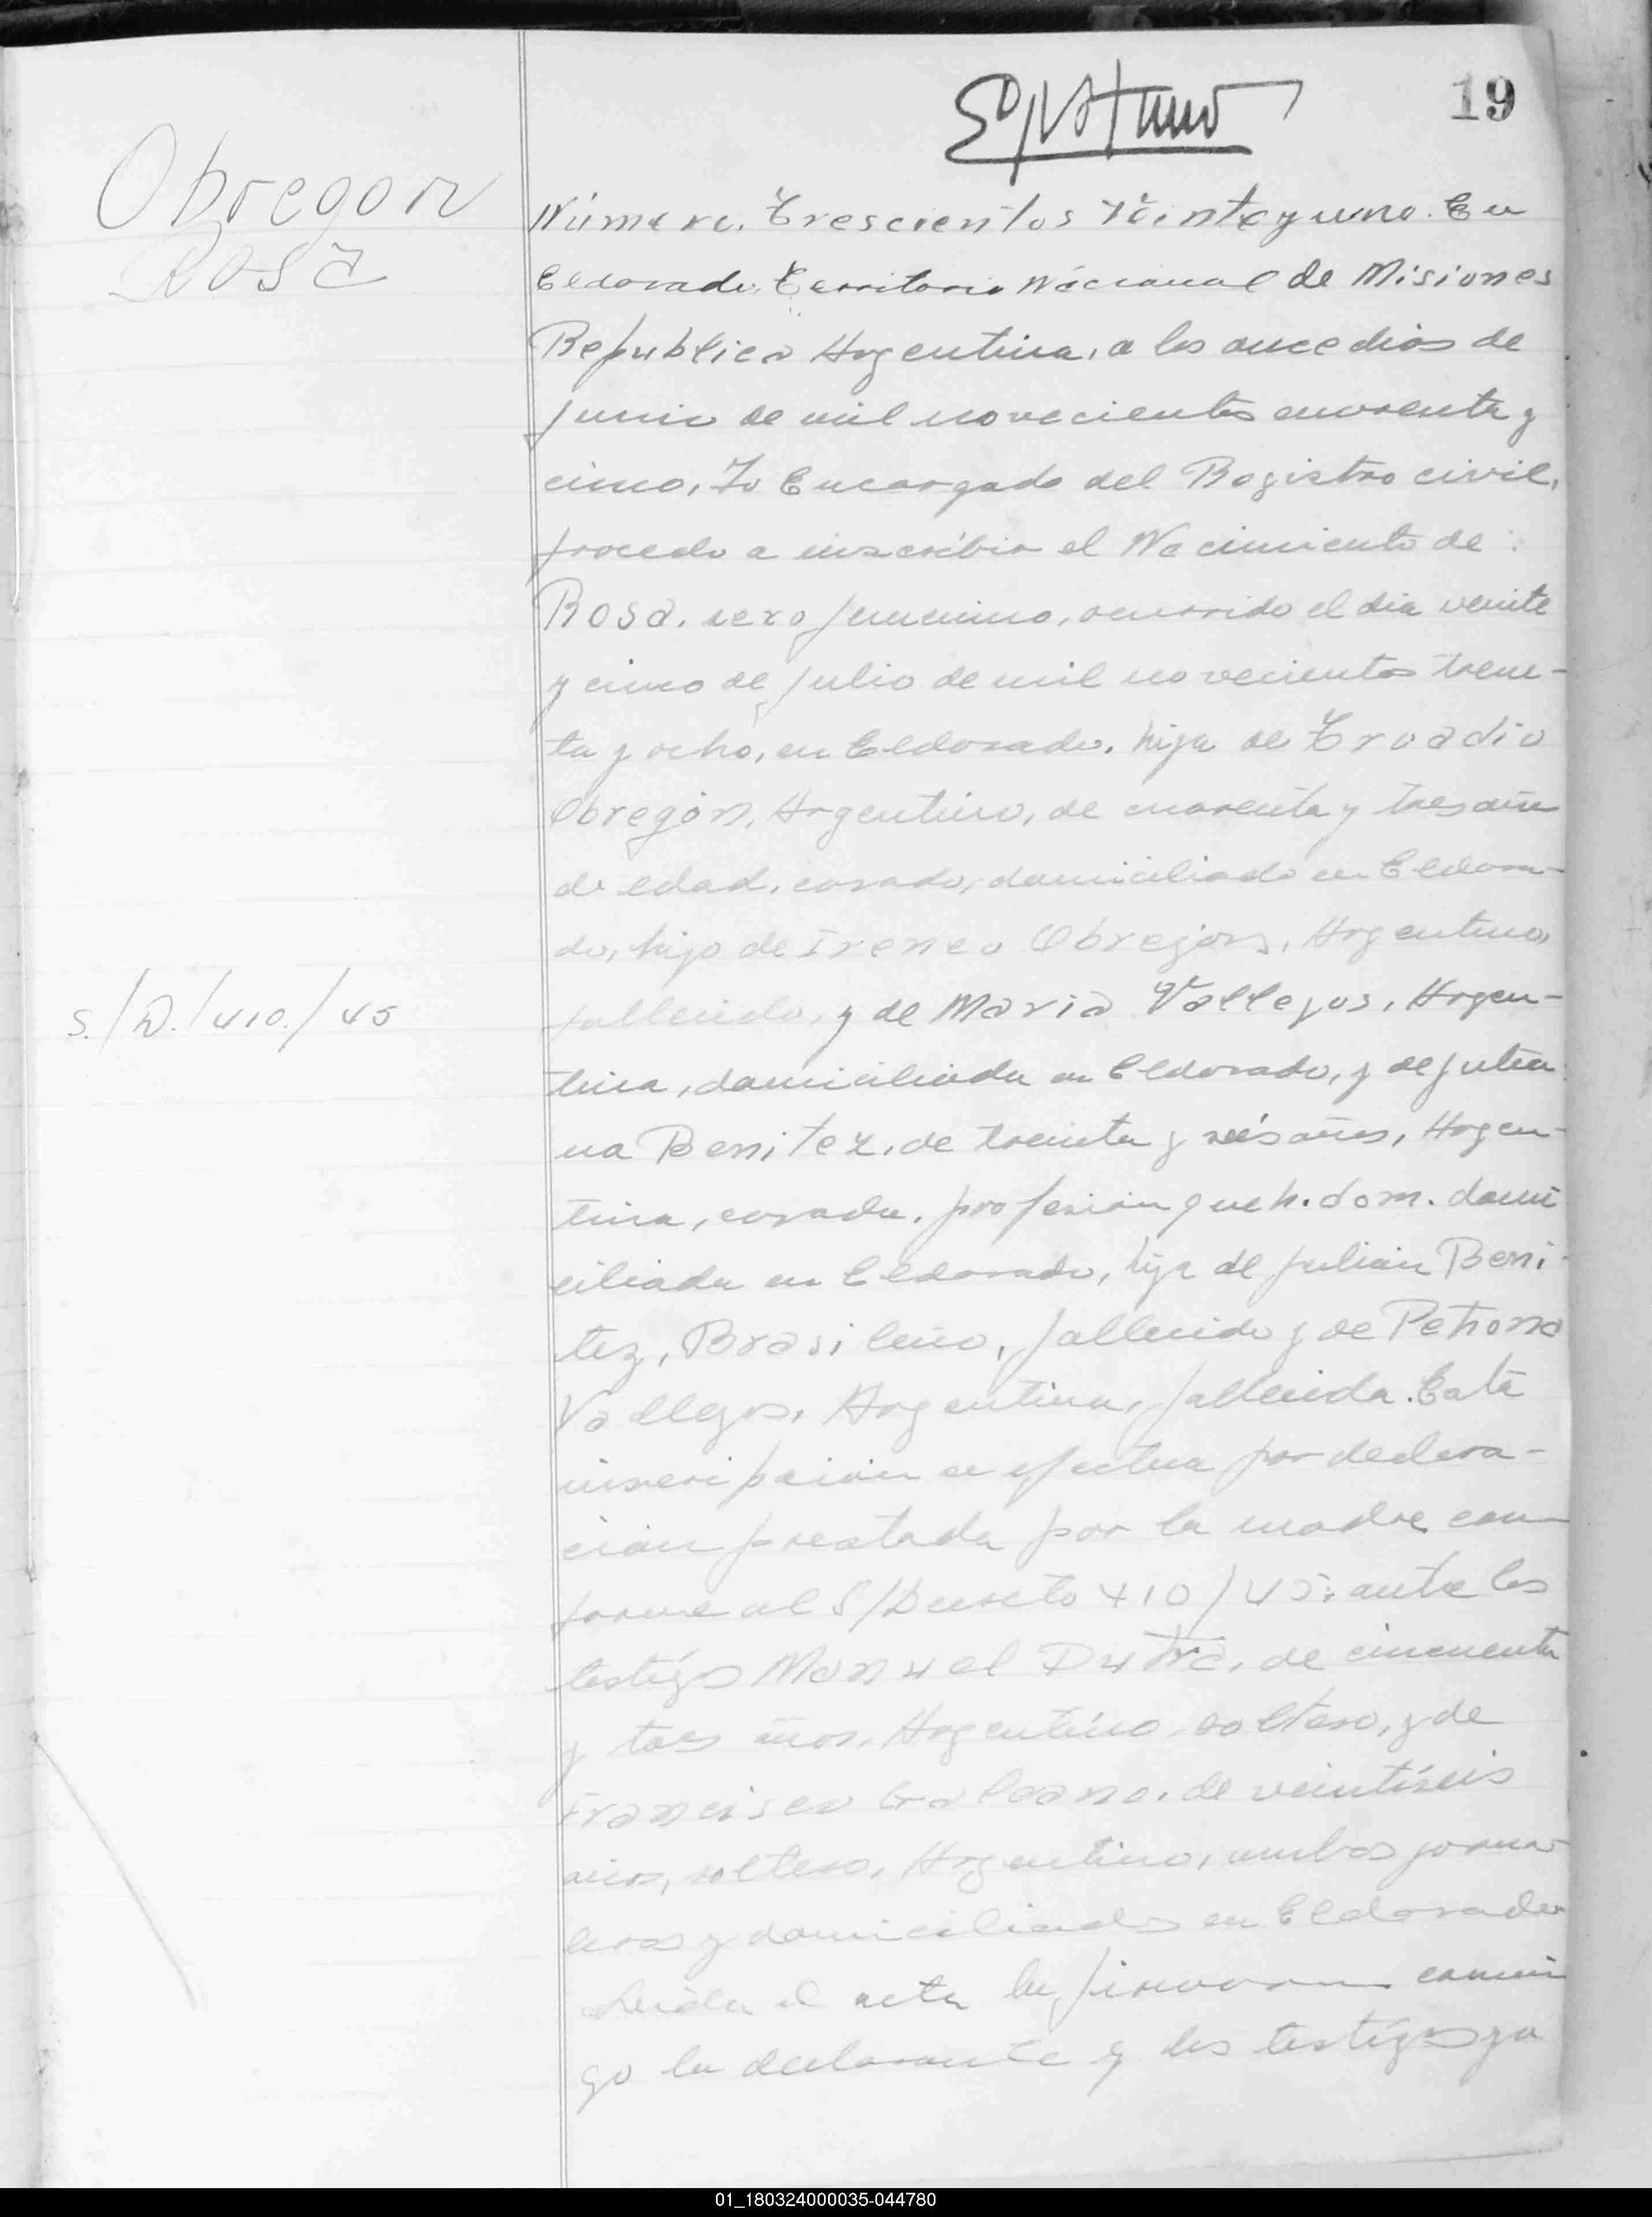 19
Obregon
Rosa
Número. Trescientos Veinte y uno. En
Eldorado. Territorio Nacional de Misiones
Republica Argentina, a los once dias de
junio de mil novecientos cuarenta y
cinco, Yo Encargado del Registro civil,
procedo a inscribir el Nacimiento de:
Rosa. sexo femenino, ocurrido el dia veinte
y cinco de julio de mil novecientos trein-
ta y ocho, en Eldorado. hija de Troadio
Obregón, Argentino, de cuarenta y tres años
de edad, casado, domiciliado en Eldora-
do, hijo de Ireneo Obregon, Argentino,
fallecido, y de Maria Vallejos, Argen-
S./D./410./45
tina, domiciliada en Eldorado, y de Julia
na Benitez, de treinta y seis años, Argen-
tina, casada, profesion queh. dom. domi
ciliada en Eldorado, hija de Julian Beni-
tez, Brasileño, fallecido y de Petrona
Vallejos, Argentina, fallecida. Esta
inscripcion se efectua por declara-
cion prestada por la madre con
forme al S/Decreto 410/45: ante los
testigos Manuel Dutra, de cincuenta
y tres años, Argentino, soltero, y de
Francisco Galeano, de veintiseis
años, soltero, Argentino, ambos jorna-
leros y domiciliados en Eldorado
Leida el acta la firmaron conmi
go la declarante y los testigos ya
01_180324000035-044780